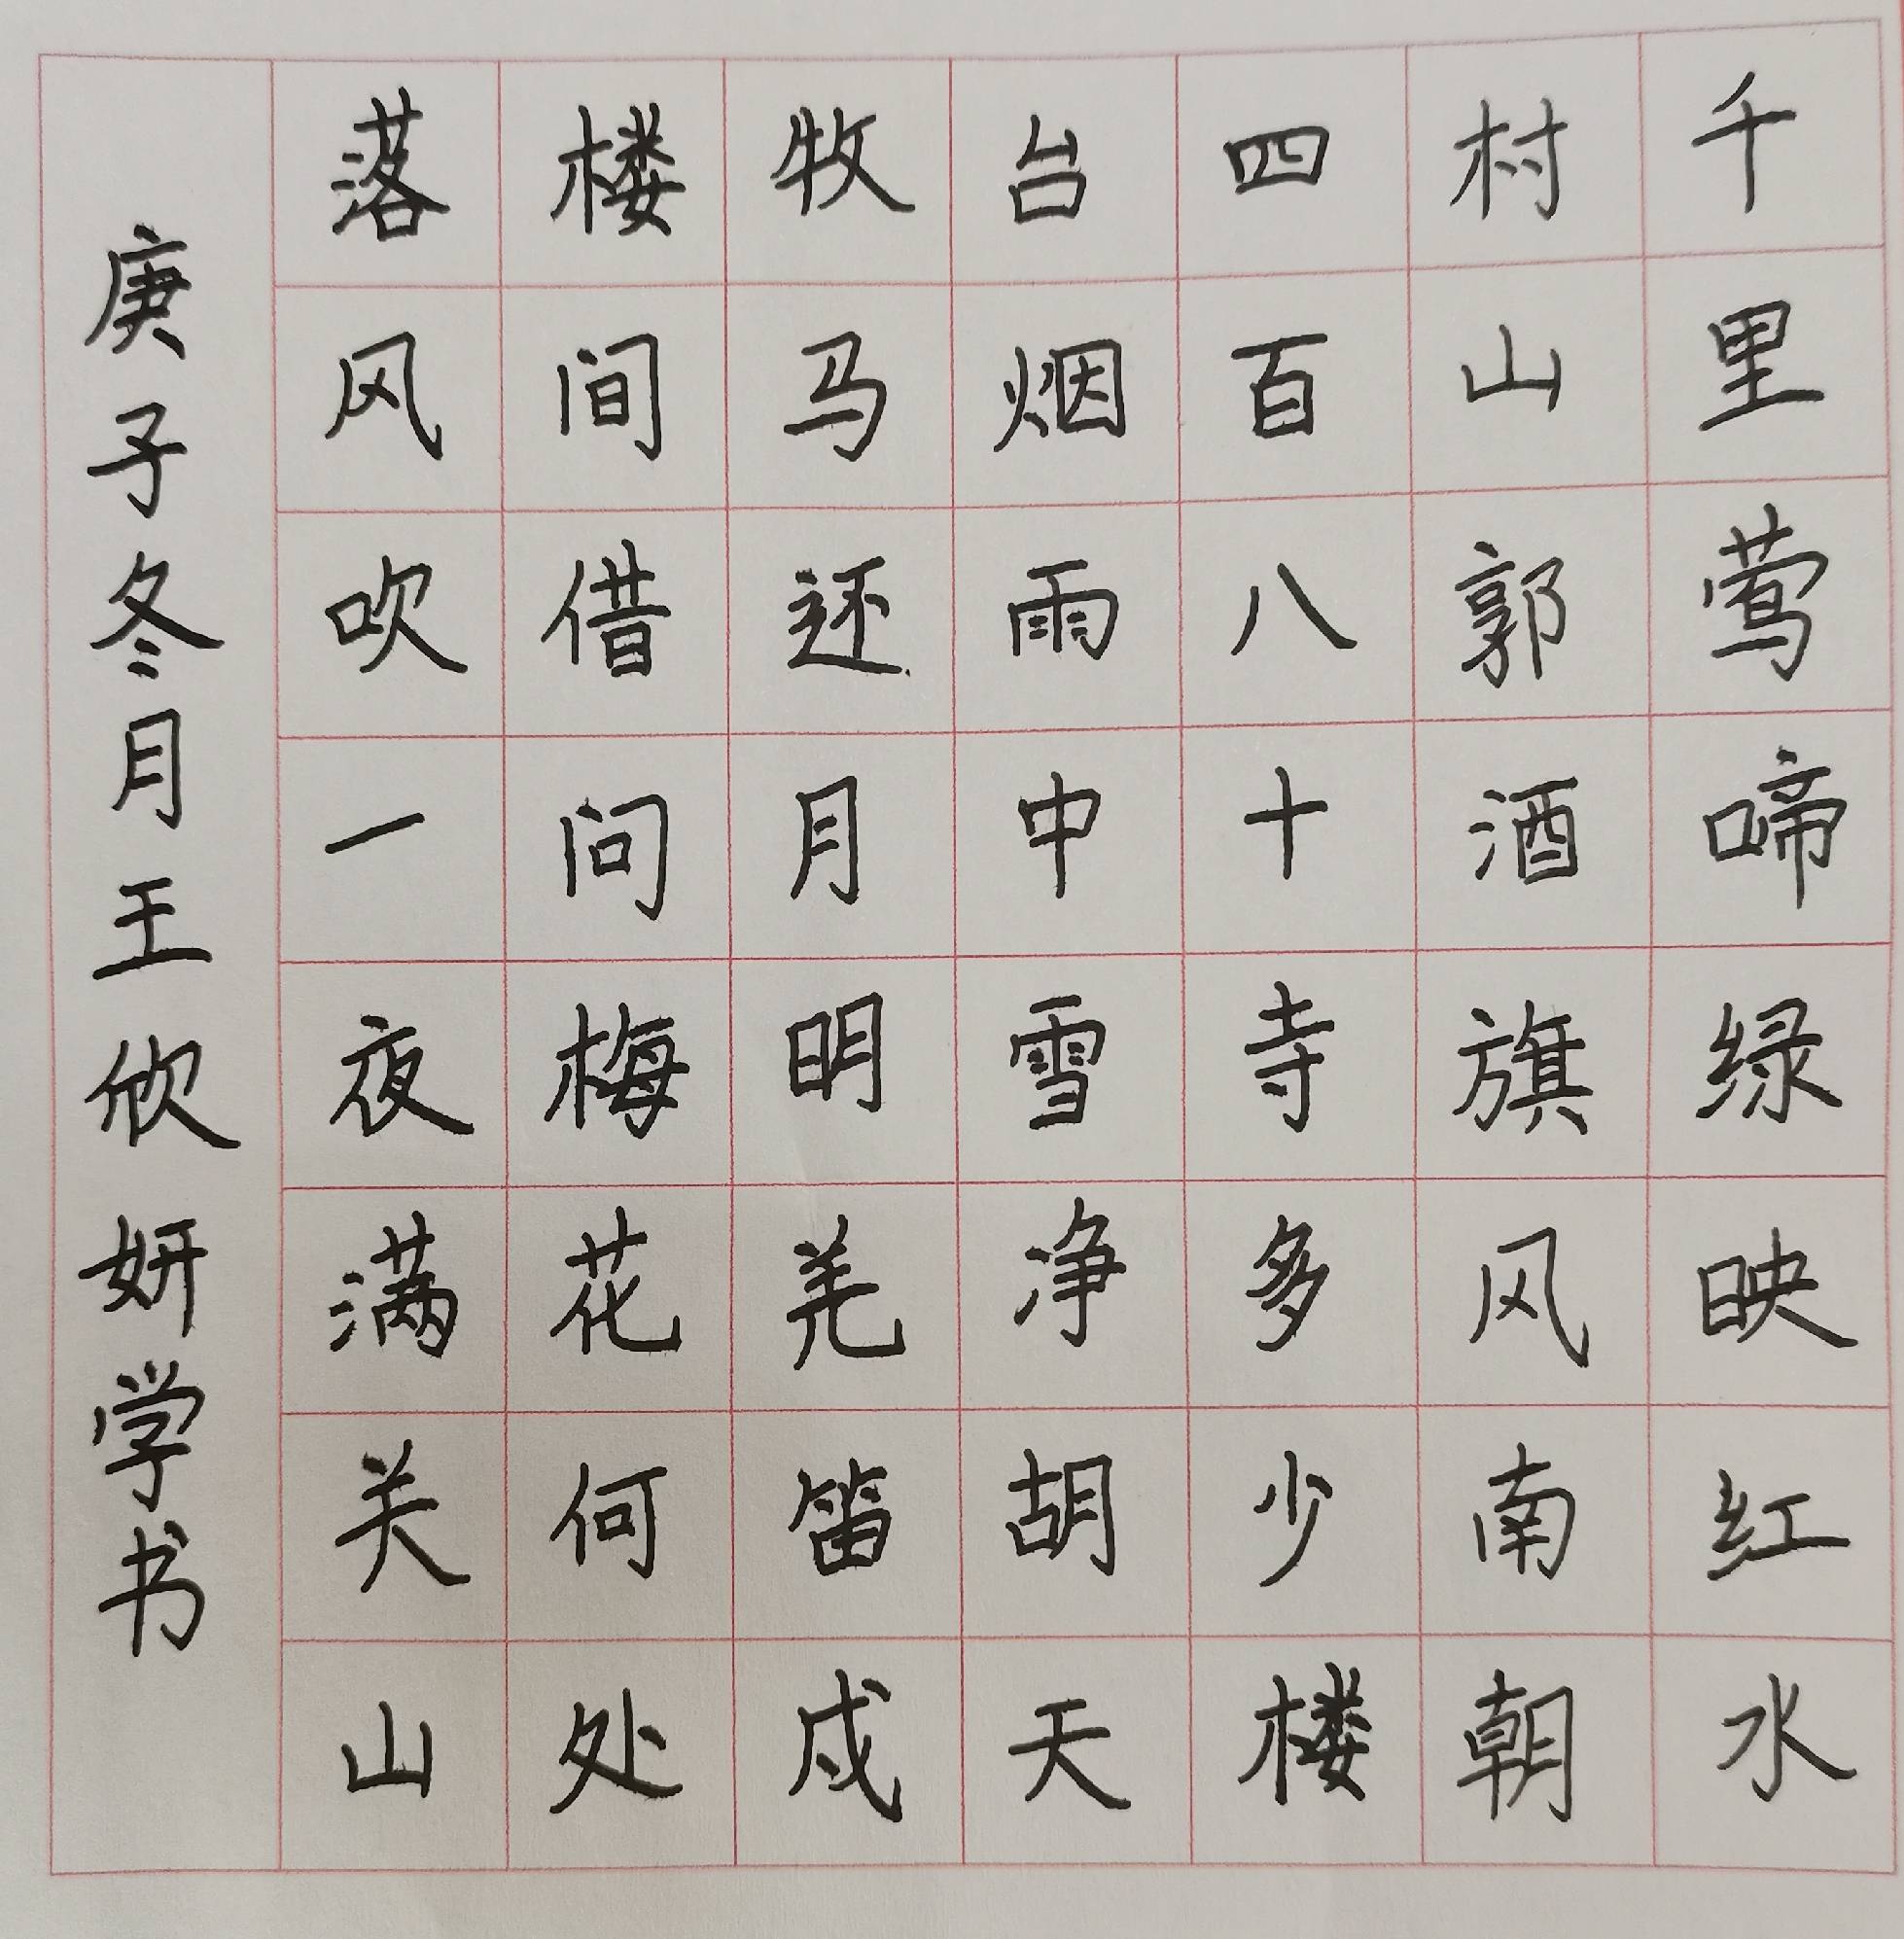 千里莺啼绿映红水
村山郭酒旗风南朝
四百八十寺多少楼
台烟雨中雪净胡天
牧马还月明羌笛戍
楼间借问梅花何处
落风吹一夜满关山
庚子冬月王欣妍学书